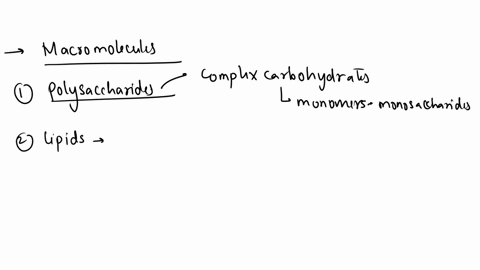 → Macromolecules
① Polysaccharides
Complex carbohydrates
monomers - monosaccharides
② lipids →